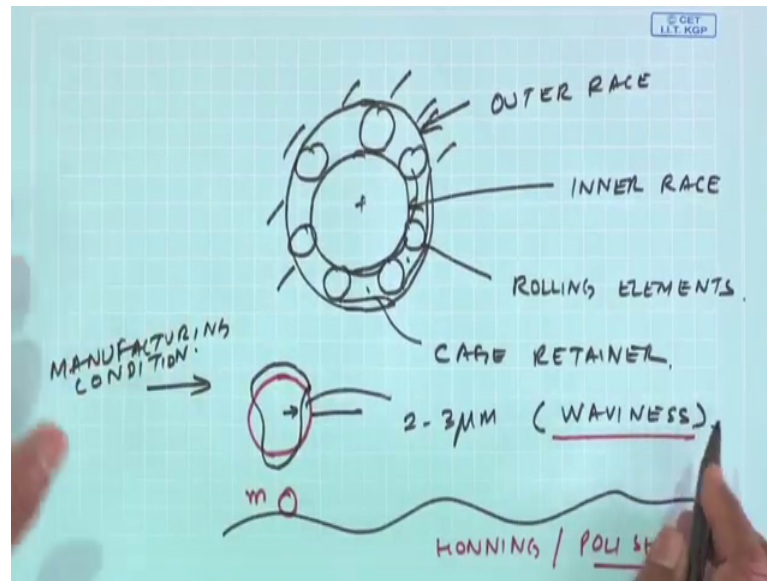 © CET
I.I.T. KGP
OUTER RACE
INNER RACE
ROLLING ELEMENTS.
CAGE RETAINER.
MANUFACTURING
CONDITION.
2-3μm (WAVINESS).
m
HONNING /